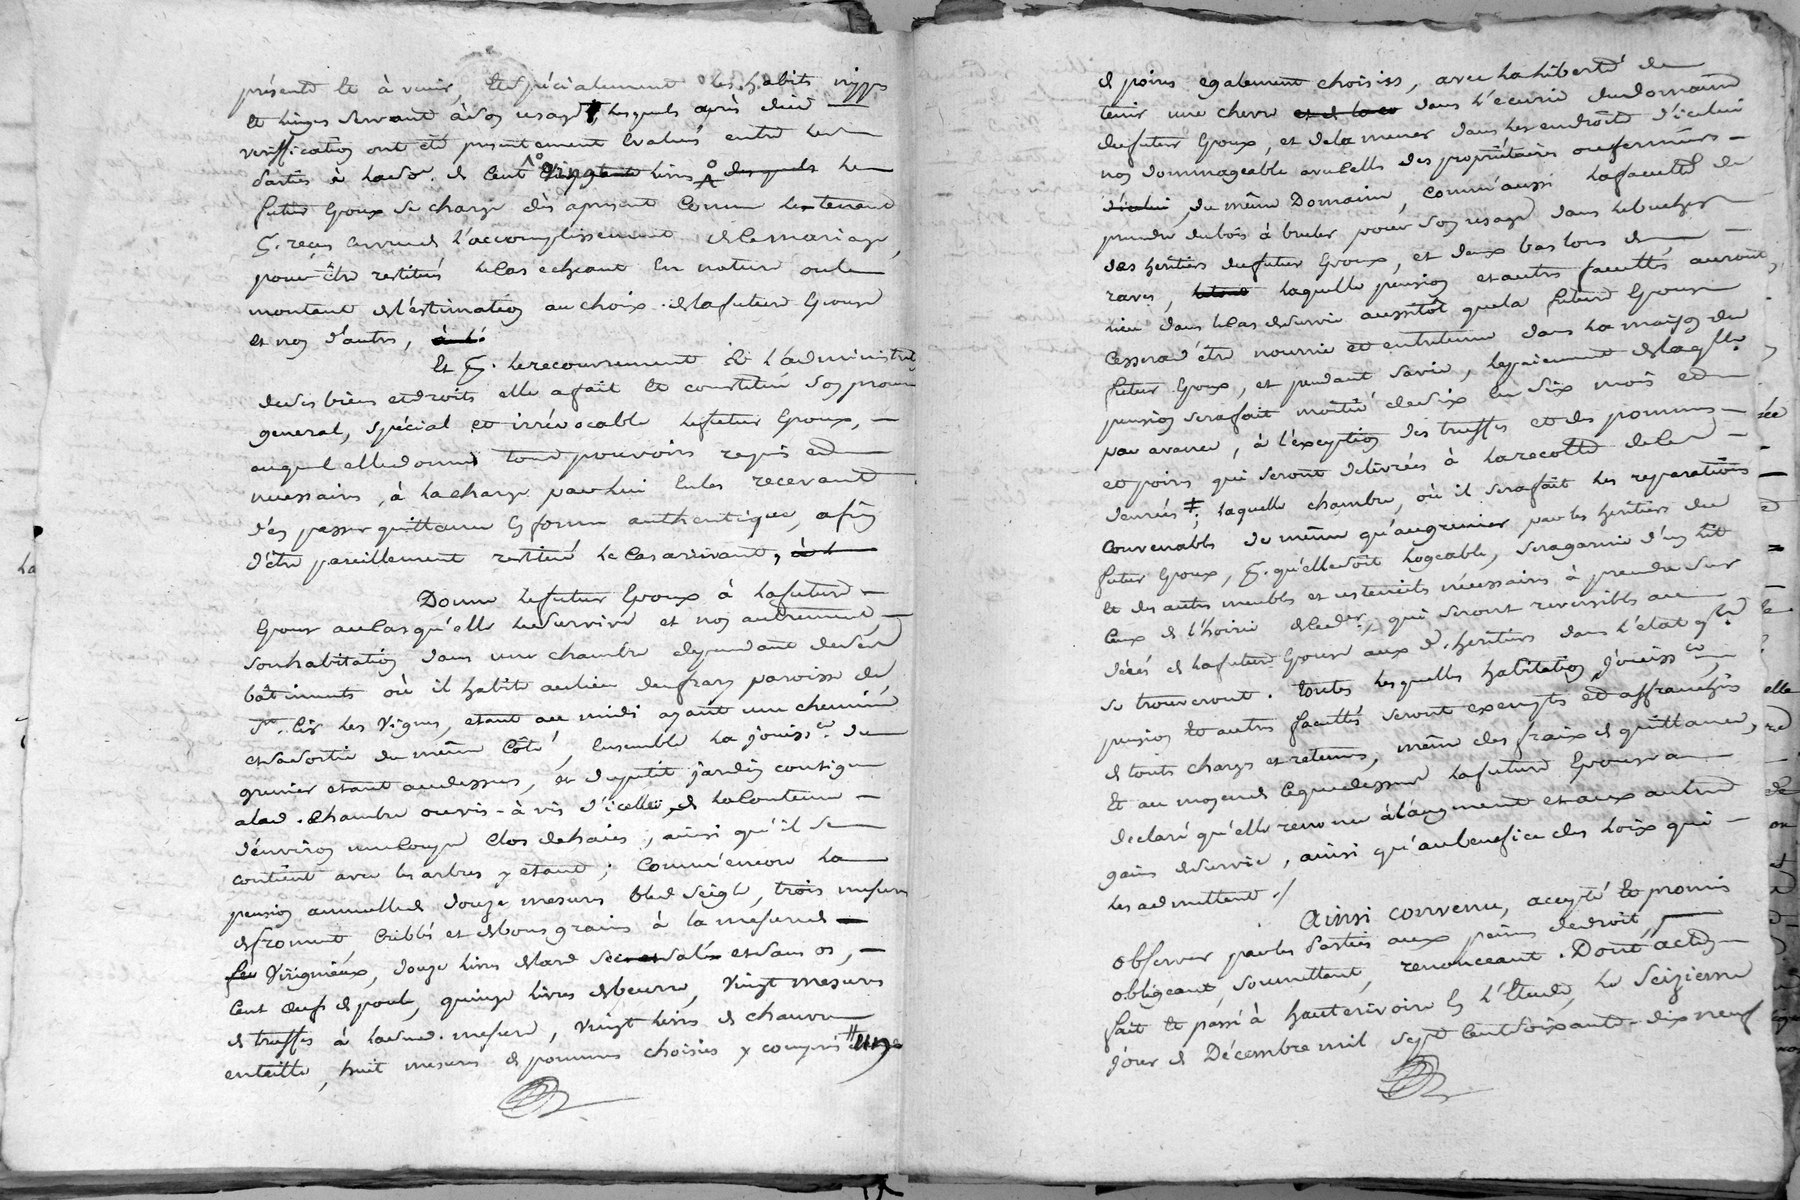 présents et à venir, et spécialement les habits nippes
et linges servant à son usage lesquels après due
veriffication ont été presentement evalués entre les
parties à la so.e de cent vingt livres desquels le
futur Epoux se charge dès apresent comme le tenant
p.r reçus au moyen l'accomplissement de le mariage,
pour être restitués le cas echeant en nature ou le
montant de l'estimation au choix de la future Epouse
et non d'autres, à l.
Et p.r le recouvrement & l'administra
de ses biens et droits elle a fait et constitué son procur
general, spécial et irrévocable le futur Epoux,
auquel elle donne tous pouvoirs requis et
necessaires, à la charge par lui en les recevant
d'en passer quittance en forme authentique, afin
d'être pareillement restitué le cas arrivant, à l
Donne le futur Epoux à la future
Epouse au cas qu'elle lui survive et non autrement,
son habitation dans une chambre dépendant de ses
bâtiments où il habite au lieu paroisse de
St. Cir les Vignes, etant au midi ayant une cheminée
et sa sortie du même côté, ensemble la jouiss.ce du
grenier etant au dessus, & du petit jardin contigu
a lad. chambre ou vis-à-vis d'icelle, de la contenue
d'environ une coupe clos de haies, ainsi qu'il se
contient avec les arbres y etant; comm'encore la
pension annuelle de douze mesures bled seigle, trois mesures
de froment, cribblés et de bons grains à la mesure de
feu Virigneux, douze livres de lard sec et salée et sans os,
cent oeufs de poule, quinze livres de beurre, vingt mesures
de truffes à lad. mesure, vingt livres de chanvre
enteille, huit mesures de pommes choisies y compris une
de poires egalement choisies, avec la liberté de
tenir une chevre et de la co dans l'ecurie du domaine
du futur Epoux, et de la mener dans les endroits d'icelui
non dommageable avec celles des propriétaires ou fermiers
d'icelui, du même Domaine, comm'aussi la faculté de
prendre du bois à bruler pour son usage dans le bucher
des heritiers du futur Epoux, et deux bas lons de
raves, laquelle pension et autres facultés auront
lieu dans le cas de survie aussitôt que la future Epouse
cessera d'être nourrie et entretenue dans la maison du
futur Epoux, et pendant sa vie, le paiement de laqlle
pension sera fait moitié de six en six mois et
par avance, à l'exception des truffes et des pommes
et poires qui seront délivrées à la recolte de les
denrées ; laquelle chambre, où il sera fait les reparations
convenables de même qu'au grenier par les heritiers du
futur Epoux, p.r qu'elle soit logeable, sera garnie d'un lit
et des autres meubles et ustencils nécessaires à prendre sur
ceux de l'hoirie de ce dr., qui seront reversibles au
décés de la future Epouse aux d. heritiers dans l'etat q.ls
se trouveront. toutes lesquelles habitation, jouiss.ce,
pension & autres facultés seront exempts et affranchis
de touts charges et retenues, même des fraix de quittances,
Et au moyen de ce que dessus la future Epouse a
declaré qu'elle renonce à l'augment et aux autres
gains de survie, ainsi qu'au benefice des loix qui
les admettent ./
Ainsi convenu, accepté & promis
observer par les Parties aux peines de droit,
obligeant, soumettant, renonceant. Dont acte
fait et passé à hauterivoire en l'Etude, le seizieme
jour de Décembre mil sept cent soixante-dix neuf